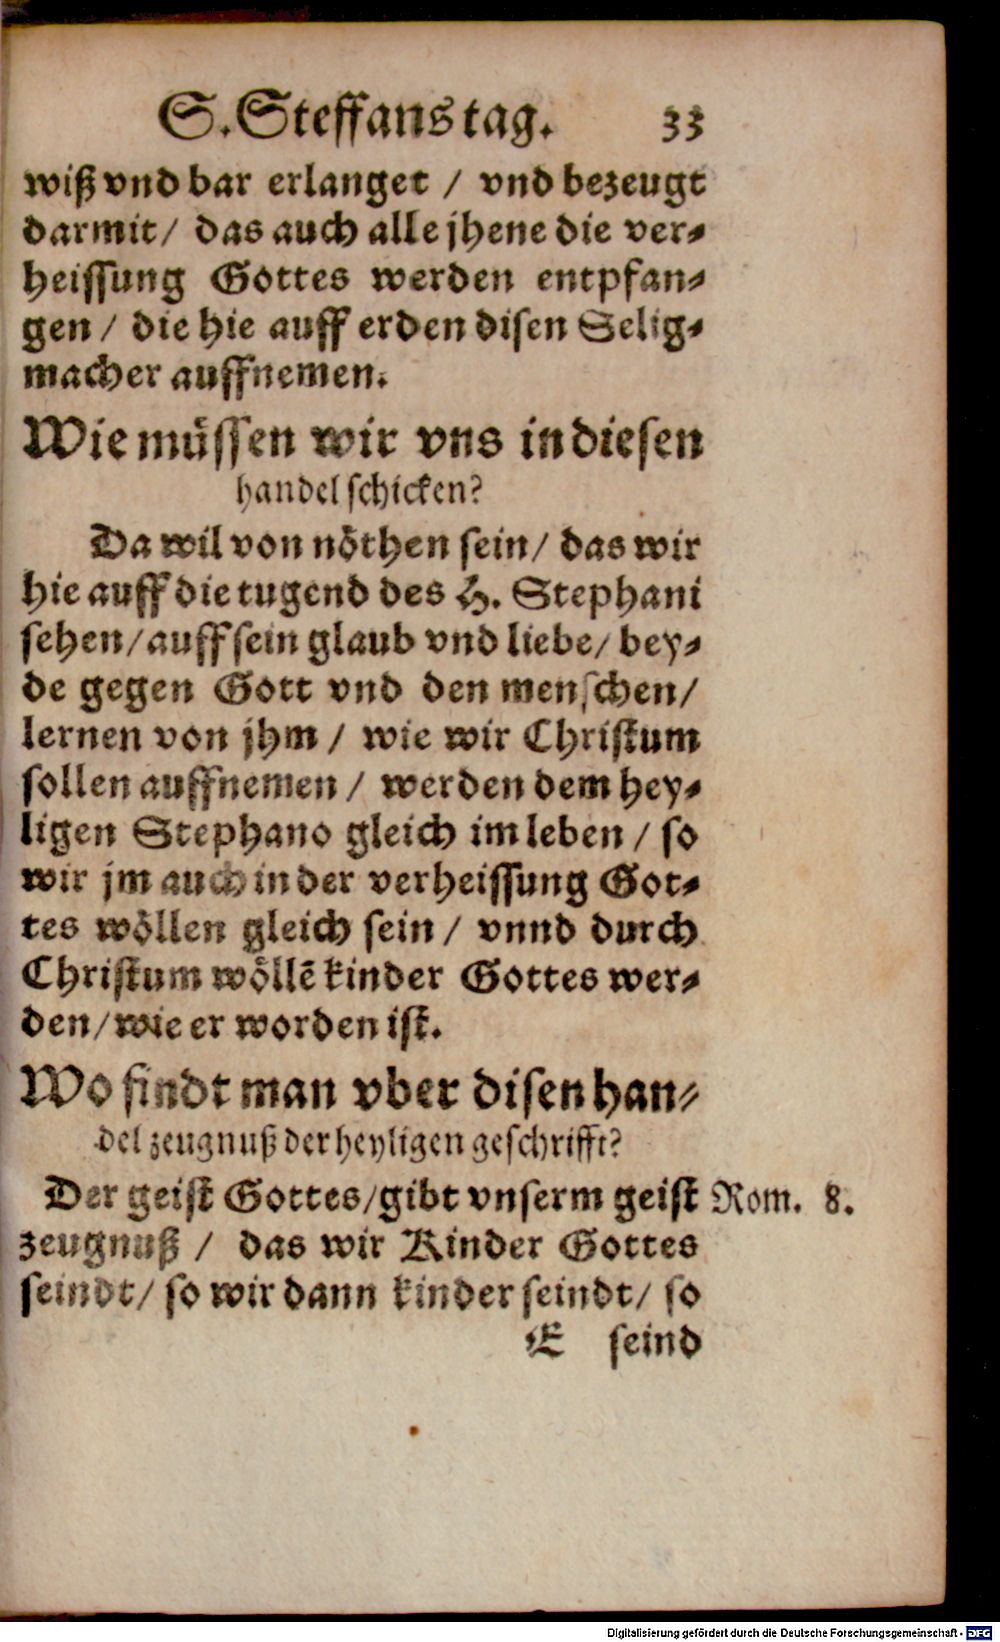 S. Steffans tag. 33
wiß vnd bar erlanget / vnd bezeugt
darmit / das auch alle jhene die ver⸗
heissung Gottes werden entpfan⸗
gen / die hie auff erden disen Selig⸗
macher auffnemen.
Wie müssen wir vns in diesen
handel schicken?
Da wil von nöthen sein / das wir
hie auff die tugend des H. Stephani
sehen / auff sein glaub vnd liebe / bey⸗
de gegen Gott vnd den menschen /
lernen von jhm / wie wir Christum
sollen auffnemen / werden dem hey⸗
ligen Stephano gleich im leben / so
wir jm auch in der verheissung Got⸗
tes wöllen gleich sein / vnnd durch
Christum wöllē kinder Gottes wer⸗
den / wie er worden ist.
Wo findt man vber disen han⸗
del zeugnuß der heyligen geschrifft?
Der geist Gottes / gibt vnserm geist Rom. 8.
zeugnuß / das wir Kinder Gottes
seindt / so wir dann kinder seindt / so
E seind
Digitalisierung gefördert durch die Deutsche Forschungsgemeinschaft - DFG